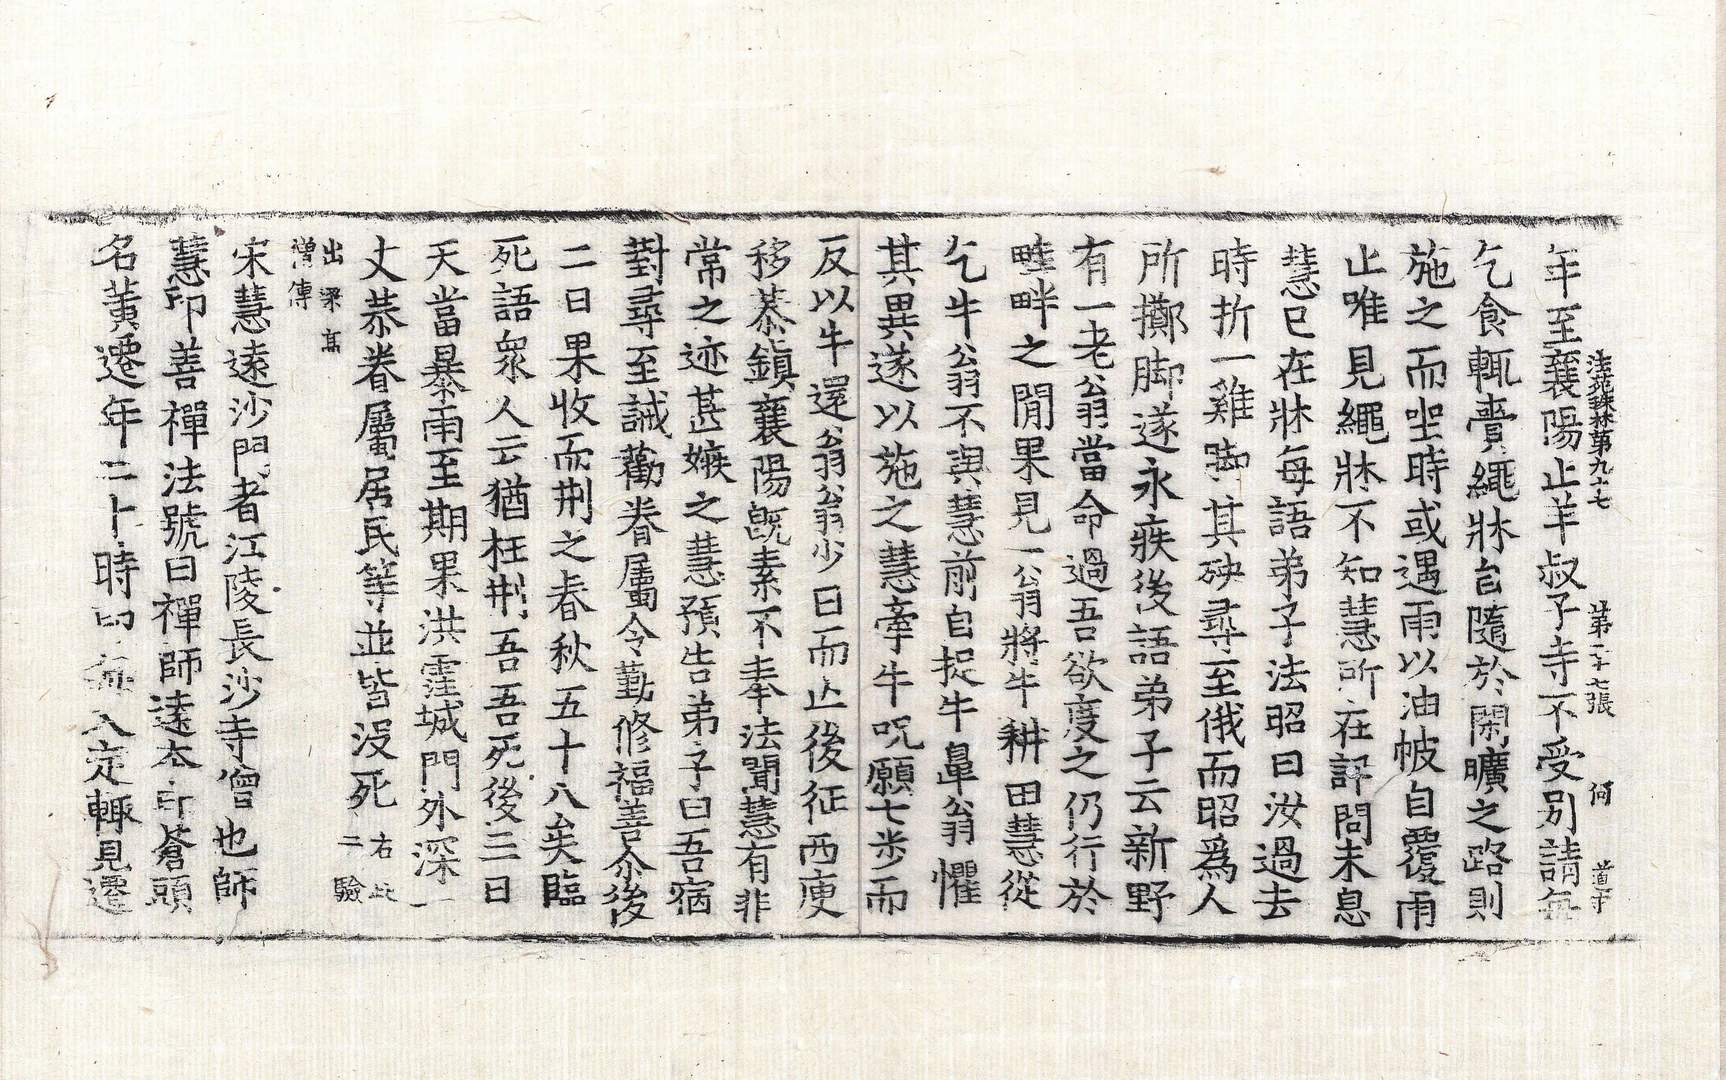 法苑珠林第九十七 第二十七張 何 道守
年至襄陽止羊叔子寺不受別請每
乞食輒賷繩牀自隨於閑曠之路則
施之而坐時或遇雨以油帔自覆雨
止唯見繩牀不知慧所在訊問未息
慧已在牀每語弟子法昭曰汝過去
時折一雞脚其殃尋至俄而昭爲人
所擲脚遂永疾後語弟子云新野
有一老翁當命過吾欲度之仍行於
畦畔之間果見一翁將牛耕田慧從
乞牛翁不與慧前自捉牛鼻翁懼
其異遂以施之慧牽牛呪願七步而
反以牛還翁翁少日而亡後征西庾
移恭鎮襄陽旣素不奉法聞慧有非
常之迹甚嫉之慧預告弟子曰吾宿
對尋至誡勸眷屬令勤修福善尒後
二日果收而刑之春秋五十八矣臨
死語衆人云猶枉刑吾吾死後三日
天當暴雨至期果洪霔城門外深一
丈恭眷屬居民等並皆没死 右此二驗
出梁高僧傳
宋慧遠沙門者江陵長沙寺僧也師
慧印善禪法號曰禪師遠本印蒼頭
名黃遷年二十時印每入定輒見遷